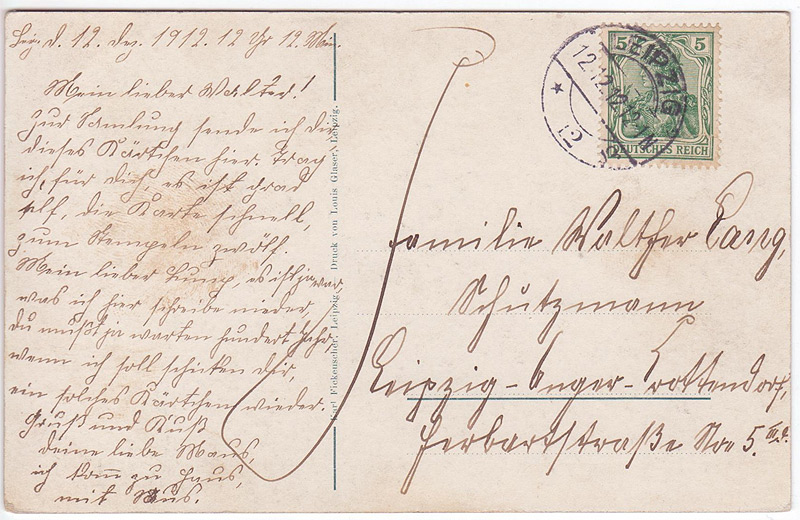 Leipz. d. 12. Dez. 1912. 12 Uhr 12 Min.
Mein lieber Walter!
Zur Samlung sende ich dir
dieses Kärtchen hier. Trag
ich, für dich, es ist grad
elf, die Karte schnell,
zum Stempeln zwölf.
Mein lieber Kung, es ist ja war,
was ich hier schreibe nieder,
du mußt ja warten hundert Jahr
wenn ich soll schicken dir,
ein solches Kärtchen wieder.
Gruß und Kuß
deine liebe Maus,
ich komm zu Haus,
mit Aus.
Karl Fickenscher, Leipzig. Druck von Louis Glaser, Leipzig.
LEIPZIG
12.12.12
12
5 5
DEUTSCHES REICH
Familie Walther Lang,
Schutzmann
Leipzig-Anger-Crottendorf,
Herbartstraße No 5. III.